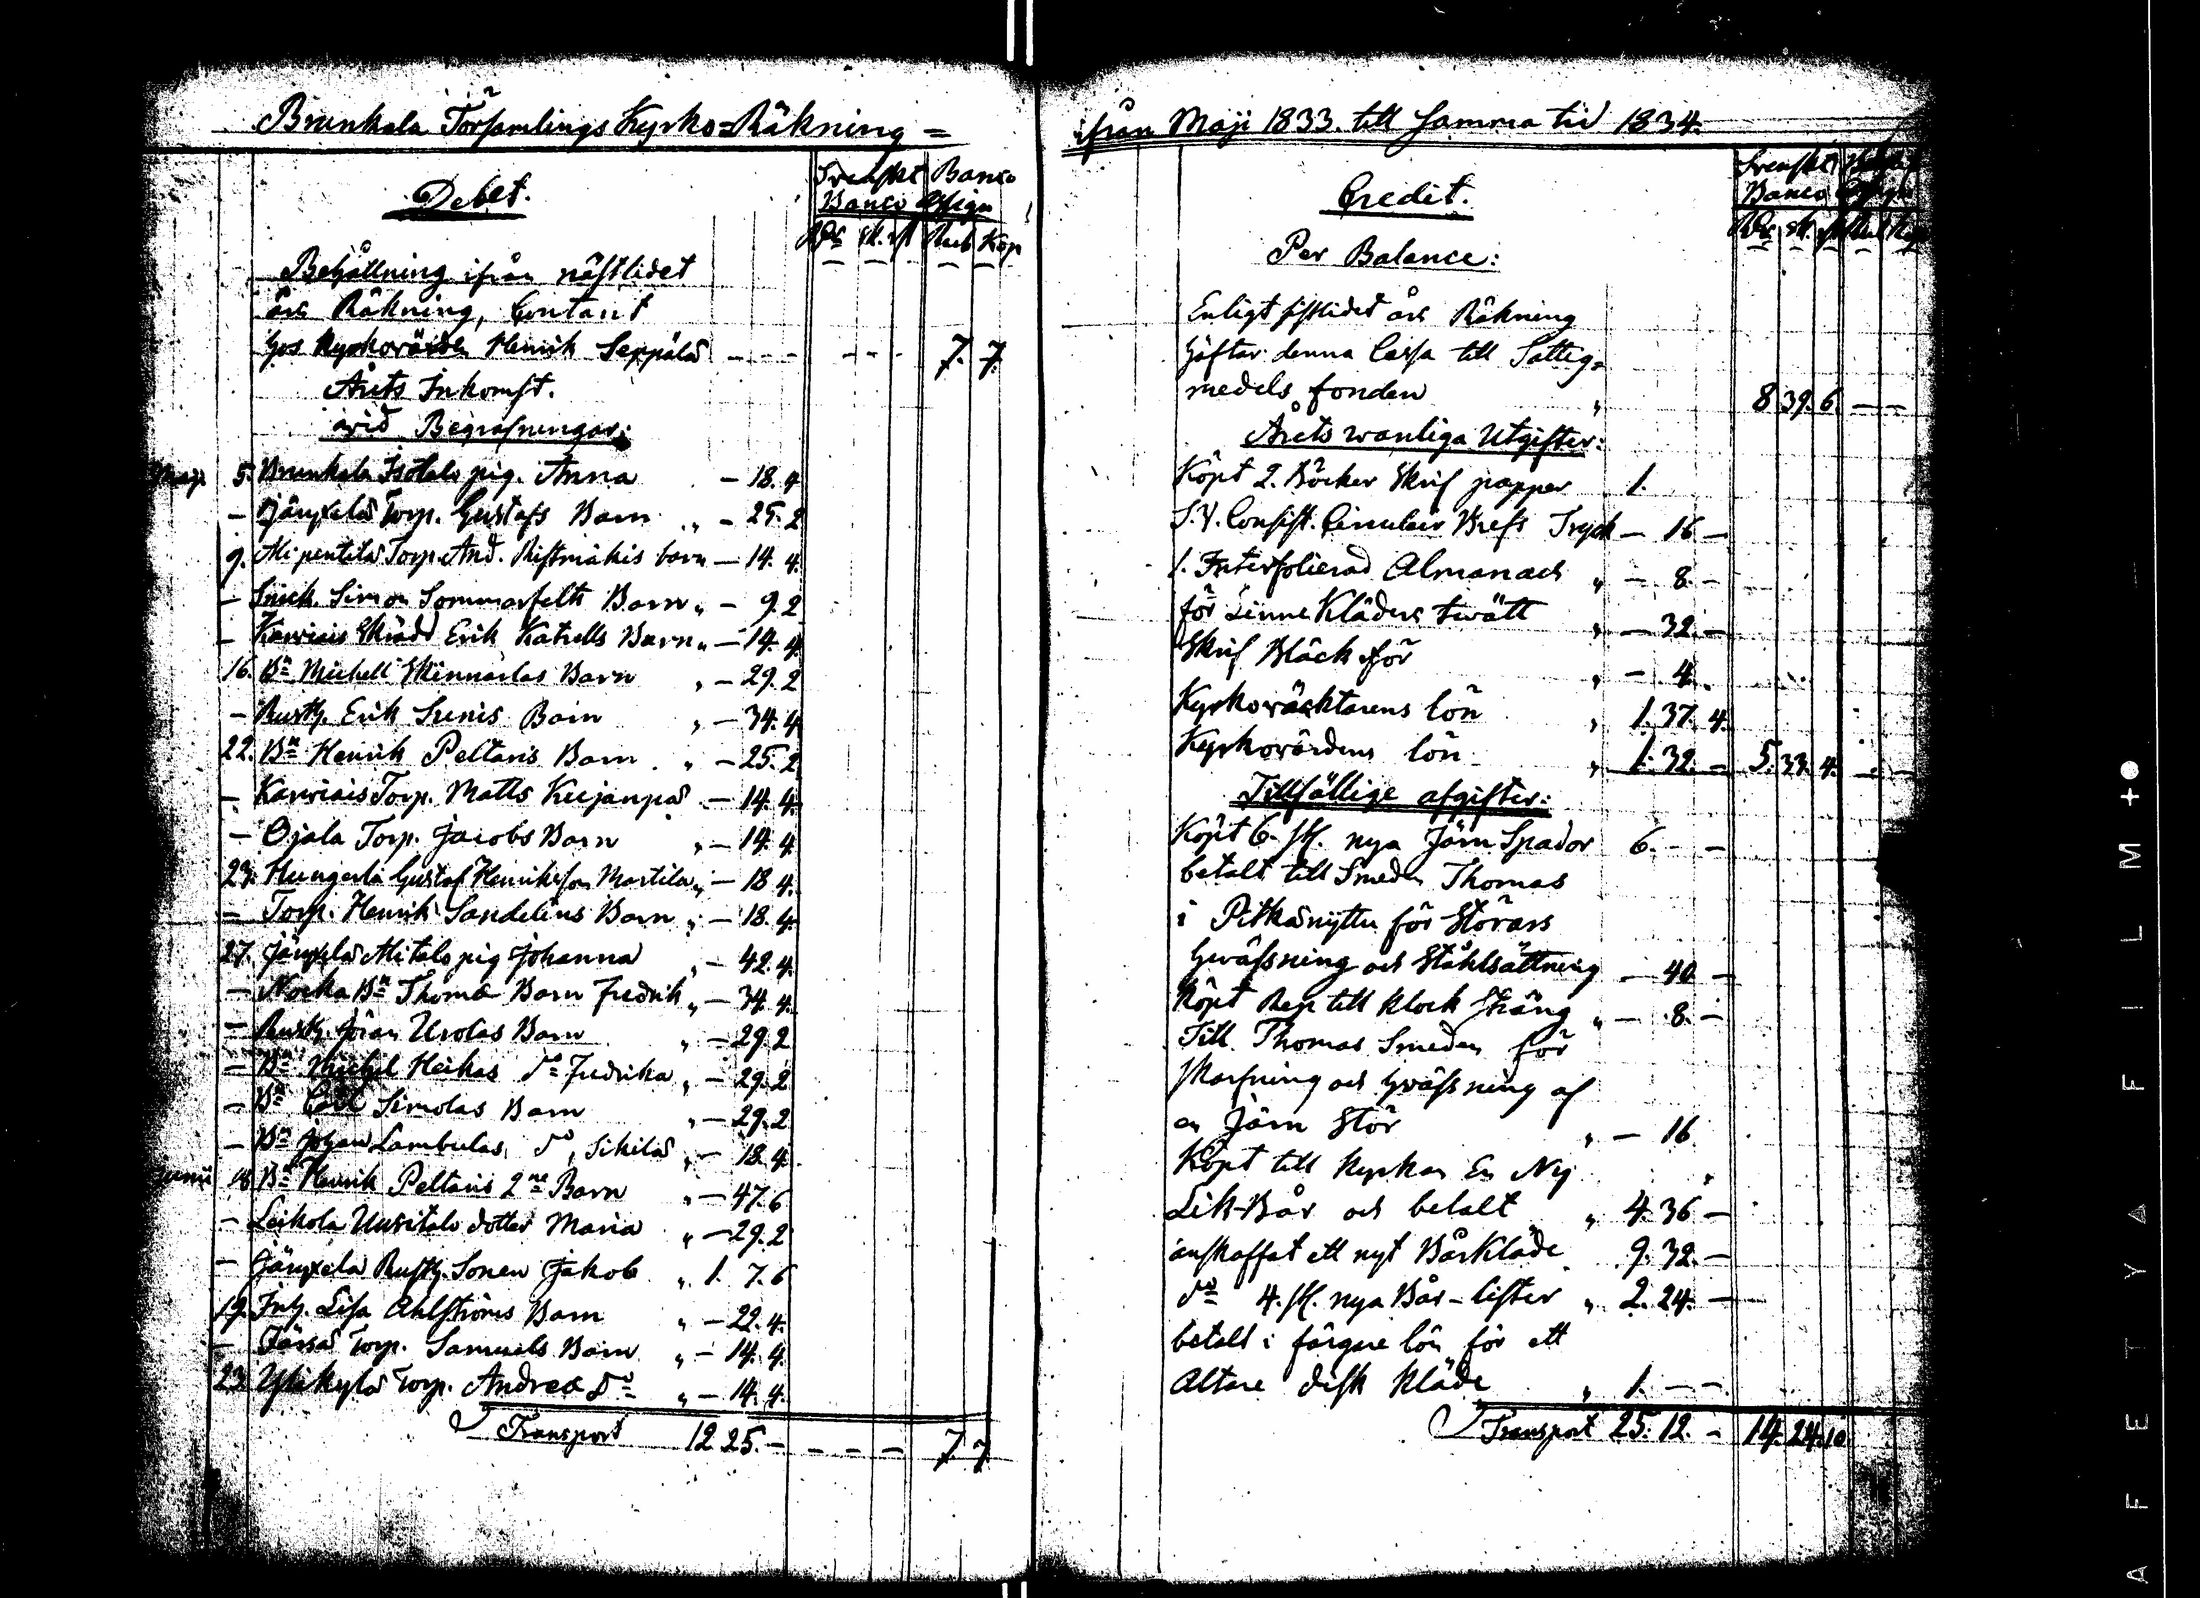 Brunkala Församlings Kyrko=Räkning =
Debet.
Svenskt Banco
Banco Assign
Rdr sk. rst Rub Kop
Behållning ifrån nästlidet
års Räkning, Contant
hos Kyrkovärden Henrik Seppälä - - - - - - 7. 7.
Årets Inkomst.
wid Begrafningar:
Maji 5. Brunkala Isotalo pig. Anna - 18. 4
- Jänxelä Torp. Gustafs Barn „ - 25. 2
9. Torp. And. Ristmäkis barn - 14. 4.
- Snick. Simon Sommarfelts Barn „ - 9. 2
- Karviais Skrädd Erik Katrells Barn „ - 14. 4.
16. Bn Michell Skinnarlas Barn „ - 29. 2
- Rusth. Erik Sunis Barn „ - 34. 4
22. Bn Henrik Peltaris Barn „ - 25. 2
- Karviais Torp. Matts Kujanpää - 14. 4.
- Ojala Torp. Jacobs Barn „ - 14. 4.
23. Hungerla Gustaf Henriksson Martila „ - 18 4.
- Torp. Henrik Sandelius Barn „ - 18. 4.
27. Jänxelä Alitalo pig Johanna „ - 42. 4.
- Nocka Bn Thoma Barn Fredrik „ - 34. 4.
- Rusth. Jöran Uvolas Barn „ - 29. 2
- Bn Michel Heikas do Fredrika „ - 29. 2
- Bn Carl Simolas Barn „ - 29. 2
- Bn Johan Lambulas, do, „ - 18. 4.
Junii 18 Bn Henrik Peltaris 2ne Barn „ - 47. 6
- Leikola Uusitalo dotter Maria „ - 29. 2
- Jänxelä Rusth. Sonen Jakob „ 1. 7. 6
19. Inh. Lisa Ahlströms Barn „ - 22. 4.
- Torp. Samuels Barn „ - 14. 4.
23. Ylikylä Torp. Andreæ do „ - 14. 4.
Transport 12 25. - - - - 7. 7.
ifrån Maji 1833. till samma tid 1834.
Credit.
Svenskt
Banco
Rdr. sk.
Per Balance:
Enligt sistlidet års Räkning
häftar denna Cassa till Fattig=
medels fonden „ 8 39. 6. - -
Årets wanliga Utgifter:
Köpt 2. Böcker Skrif papper 1.
Consist. Circulair Brefs Tryck - 16 -
1. Interfolierad Almanach „ - 8. -
för Linne Kläders twätt „ - 32. -
Skrif Bläck för „ - 4.
Kyrkowäktarens lön „ 1. 37. 4.
Kyrkovärdens lön „ 1. 32. - 5. 33. 4. - -
Tillfällige afgifter:
Köpt 6. st. nya Järn Spador 6. - -
betalt till Smeden Thomas
i för Störars
hwässning och Stålsättning - 40 -
Köpt Rep till klock Sträng „ - 8. -
Till Thomas Smeden för
skarfning och hwässning af
en Järn Stör „ - 16
Köpt till Kyrkan En Ny
Lik-Bår och betalt „ 4. 36 -
anskaffat ett nytt Bårkläde 9. 32. -
do 4. st. nya Bår-lister „ 2. 24. -
betalt i färgare lön för ett
Altare disk kläde „ 1. - -
Transport 25. 12. - 14. 24. 10
AFETYA FILM